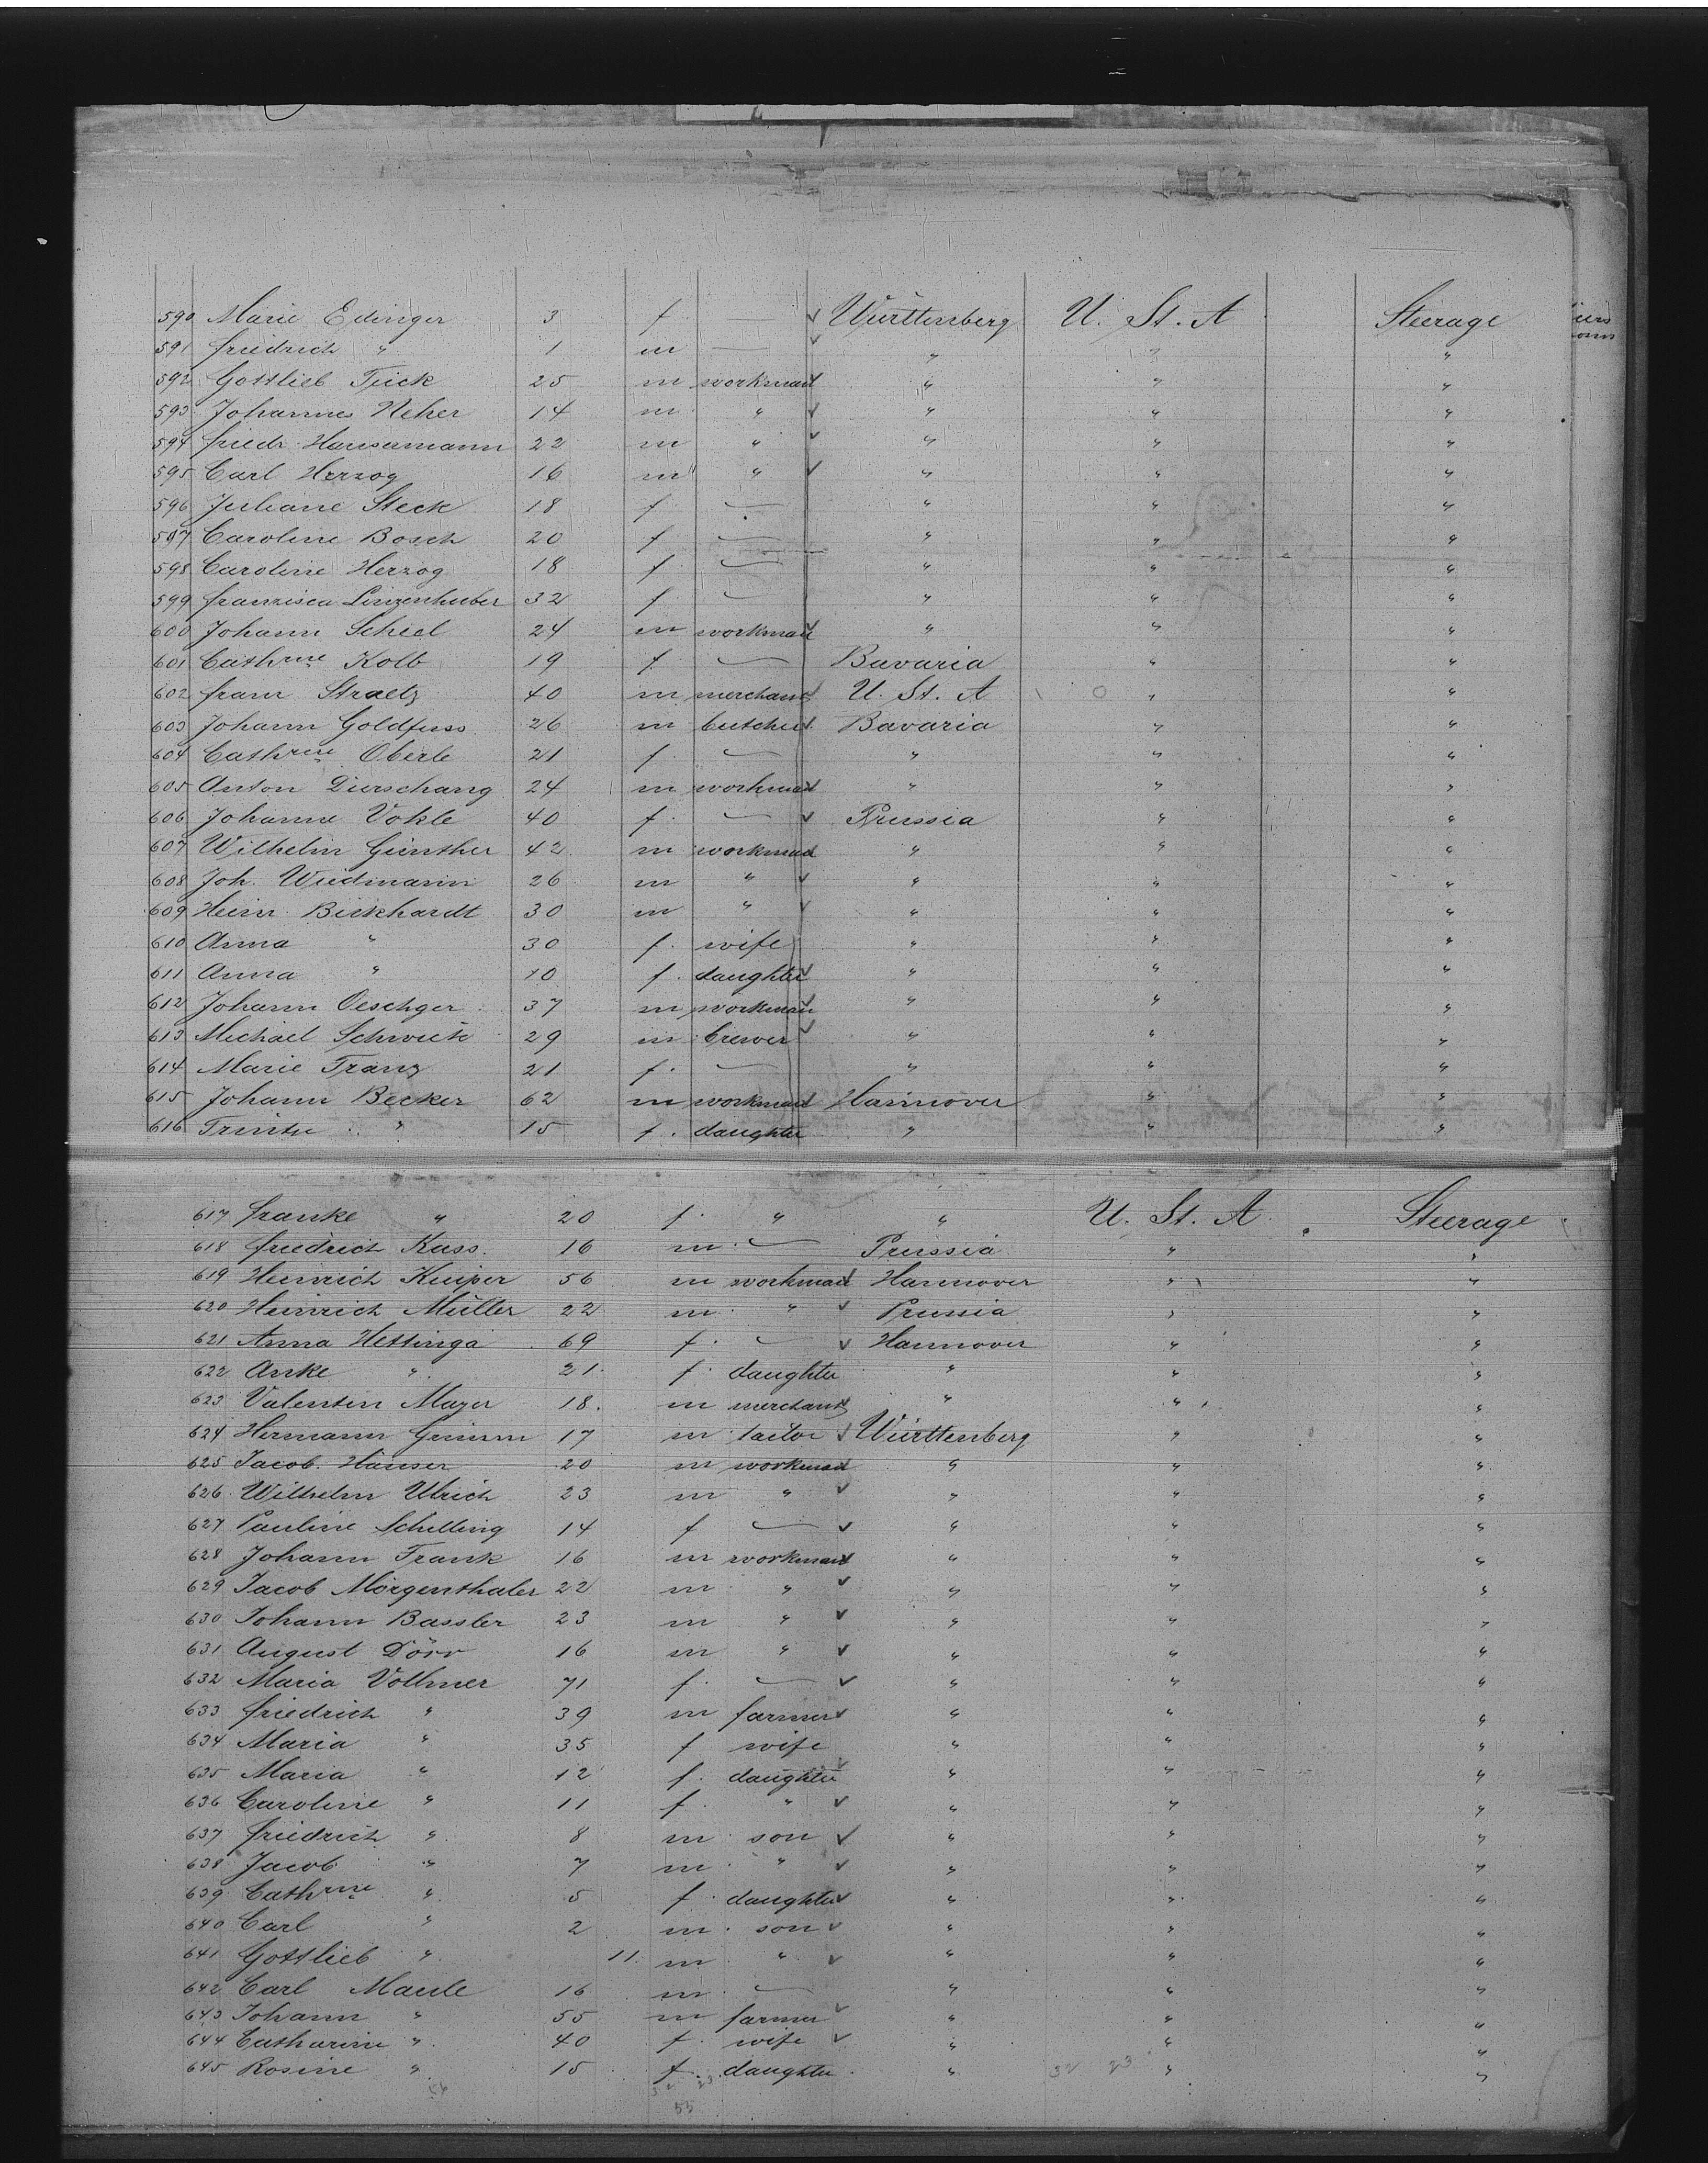 590 Marie Edinger 3 f. Württenberg U. St. A Steerage
591 friedrich " 1 m — " " "
592 Gottlieb Fück 25 m workman " " "
593 Johannes Neher 14 m " " " "
594 friedr. Hausermann 22 m " " " "
595 Carl Herzog 16 m " " " "
596 Juliane Steck 18 f — " " "
597 Caroline Bosch 20 f — " " "
598 Caroline Herzog 18 f — " " "
599 franzisca Linzenhuber 32 f — " " "
600 Johann Scheel 24 m workman " " "
601 Cathrine Kolb 19 f. — Bavaria " "
602 franz Straetz 40 m merchant U. St. A " "
603 Johann Goldfuss 26 m butcher Bavaria " "
604 Cathrine Oberle 21 f — " " "
605 Anton Dierschang 24 m workman " " "
606 Johanna Vohle 40 f. — Prussia " "
607 Wilhelm Günther 42 m workman " " "
608 Joh. Wiedmann 26 m " " " "
609 Heinr. Bickhardt 30 m " " " "
610 Anna " 30 f. wife " " "
611 Anna " 10 f. daughter " " "
612 Johann Oeschger 37 m workman " " "
613 Michael Schwick 29 m brewer " " "
614 Marie Franz 21 f. — " " "
615 Johann Becker 62 m workman Hannover " "
616 Trintje " 15 f. daughter " " "
617 franke " 20 f. " " U. St. A. Steerage
618 friedrich Kass. 16 m. — Prussia " "
619 Heinrich Kuiper 56 m workman Hannover " "
620 Heinrich Müller 22 m. " Prussia " "
621 Anna Hettinga 69 f. — Hannover " "
622 Anke " 21. f. daughter " " "
623 Valentin Mayer 18. m merchant " " "
624 Hermann Grimm 17 m tailor Württenberg " "
625 Jacob Häuser 20 m workman " " "
626 Wilhelm Ulrich 23 m " " " "
627 Pauline Schilling 14 f — " " "
628 Johann Frank 16 m workman " " "
629 Jacob Morgenthaler 22 m " " " "
630 Johann Bassler 23 m " " " "
631 August Dörr 16 m " " " "
632 Maria Vollmer 71 f. — " " "
633 friedrich " 39 m farmer " " "
634 Maria " 35 f wife " " "
635 Maria " 12 f. daughter " " "
636 Caroline " 11 f. " " " "
637 friedrich " 8 m. son " " "
638 Jacob " 7 m. " " " "
639 Cathrine " 5 f. daughter " " "
640 Carl " 2 m. son " " "
641 Gottlieb " 11. m " " " "
642 Carl Maule 16 m. — " " "
643 Johann " 55 m farmer " " "
644 Catharine " 40 f. wife " " "
645 Rosine " 15 f. daughter " 32 23 " "
32 23
55